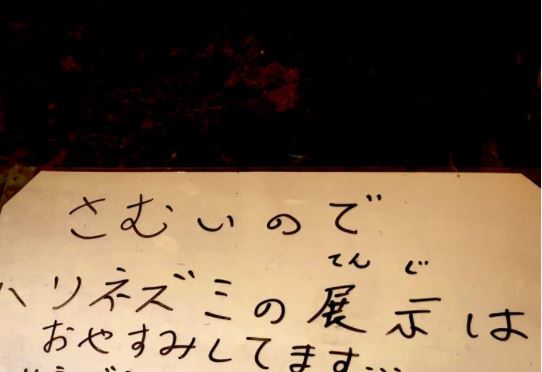 さむいので
ハリネズミの展示は
てんじ
おやすみしてます…